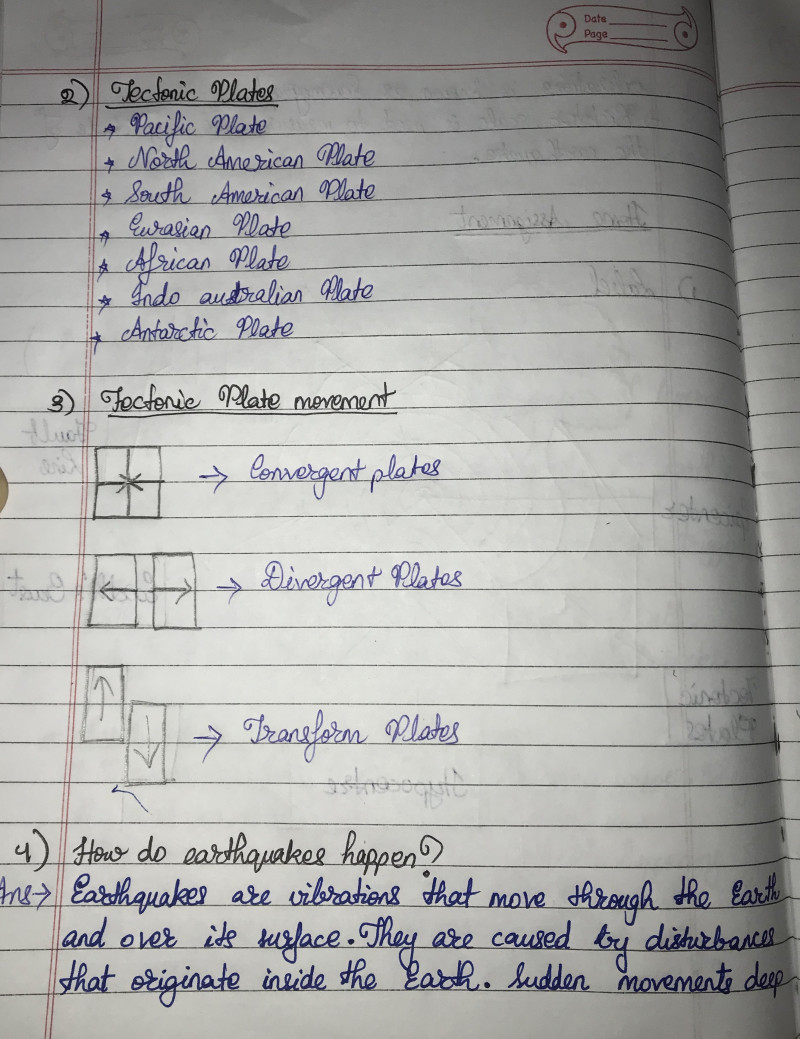 Date
Page
2) Tectonic Plates
→ Pacific Plate
→ North American Plate
→ South American Plate
→ Eurasian Plate
→ African Plate
→ Indo australian Plate
→ Antarctic Plate
3) Tectonic Plate movement
→ Convergent plates
→ Divergent Plates
→ Transform Plates
4) How do earthquakes happen?
Ans→ Earthquakes are vibrations that move through the Earth
and over its surface. They are caused by disturbances
that originate inside the Earth. Sudden movements deep